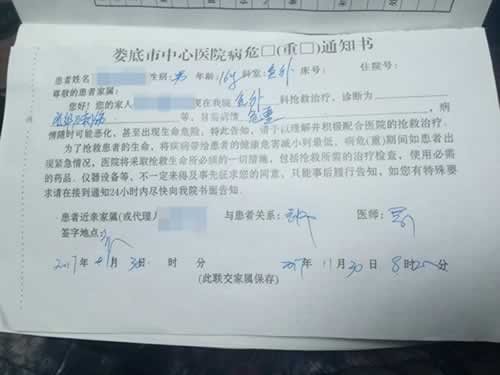 娄底市中心医院病危□(重□)通知书
患者姓名 性别:男 年龄:16岁 科室:急外 床号: 住院号:
尊敬的患者家属:
您好!您的家人 现在我院急外科抢救治疗、诊断为
等,目前病情危重,病
情随时可能恶化,甚至出现生命危险,特此告知,请予以理解并积极配合医院的抢救治疗。
为了抢救患者的生命,将疾病带给患者的健康危害减小到最低,病危(重)期间如患者出
现紧急情况,医院将采取抢救生命所必须的一切措施,包括抢救所需的治疗检查,使用必需
的药品、仪器设备等、不一定来得及事先征求您的同意,只能事后履行告知,如您有特殊要
求请在接到通知24小时内尽快向我院书面告知。
患者近亲家属(或代理人 与患者关系: 医师:
签字地点:
2017年11月30日 时 分 2017年11月30日 8时20分
(此联交家属保存)